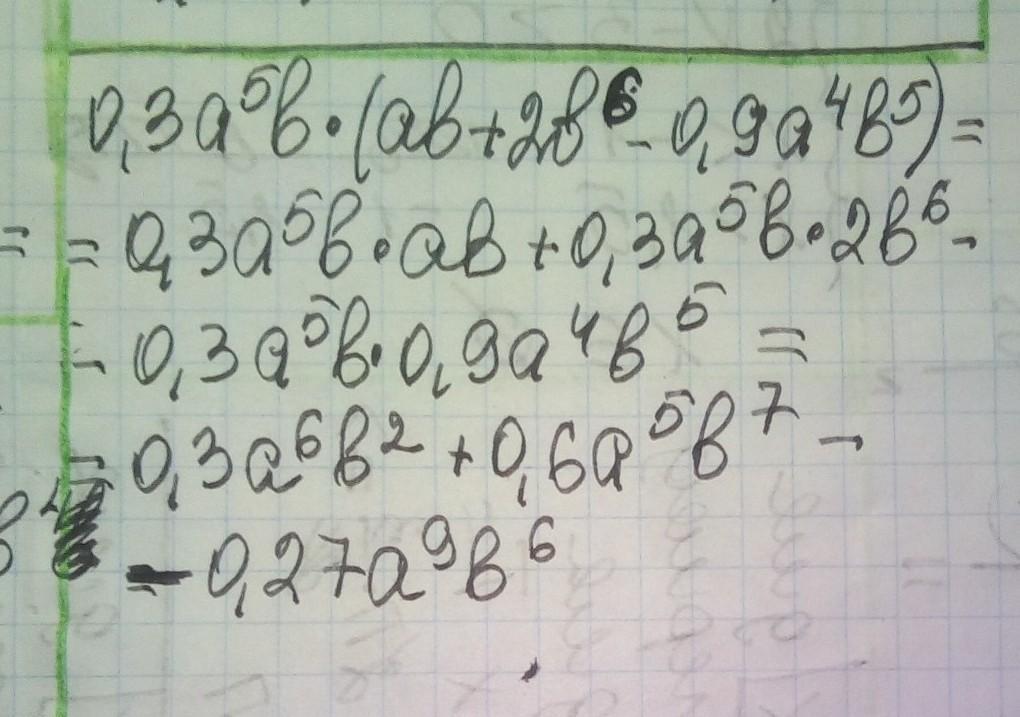 0,3a⁵b·(ab+2b⁶-0,9a⁴b⁵)=
= = 0,3a⁵b·ab+0,3a⁵b·2b⁶-
- 0,3a⁵b·0,9a⁴b⁵ =
= 0,3a⁶b²+0,6a⁵b⁷-
- 0,27a⁹b⁶